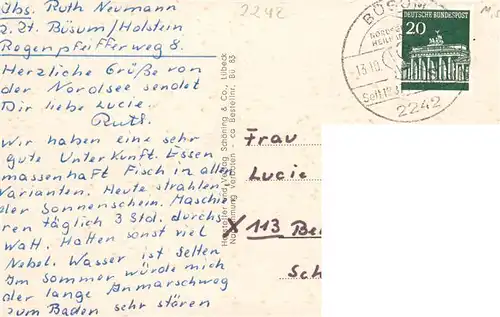 Abs. Ruth Neumann
z. Zt. Büsum/Holstein
Rogenpfeifferweg 8.
Herzliche Grüße von
der Nordsee sendet
Dir liebe Lucie.
Ruth.
Wir haben eine sehr
gute Unterkunft. Essen
massenhaft Fisch in allen
Varianten. Heute strahlen
der Sonnenschein. Maschie
ren täglich 3 Std. durchs
Watt. Hatten sonst viel
Nebel. Wasser ist selten
Im Sommer würde mich
der lange Anmarschweg
zum Baden sehr stören
Hersteller und Verlag Schöning & Co., Lübeck
Nachahmung verboten - ca Bestellnr. Bü. 83
2242
BÜSUM
13.10.
Seit 18
2242
20 DEUTSCHE BUNDESPOST
Frau
Lucie
X 113 Be
Sch